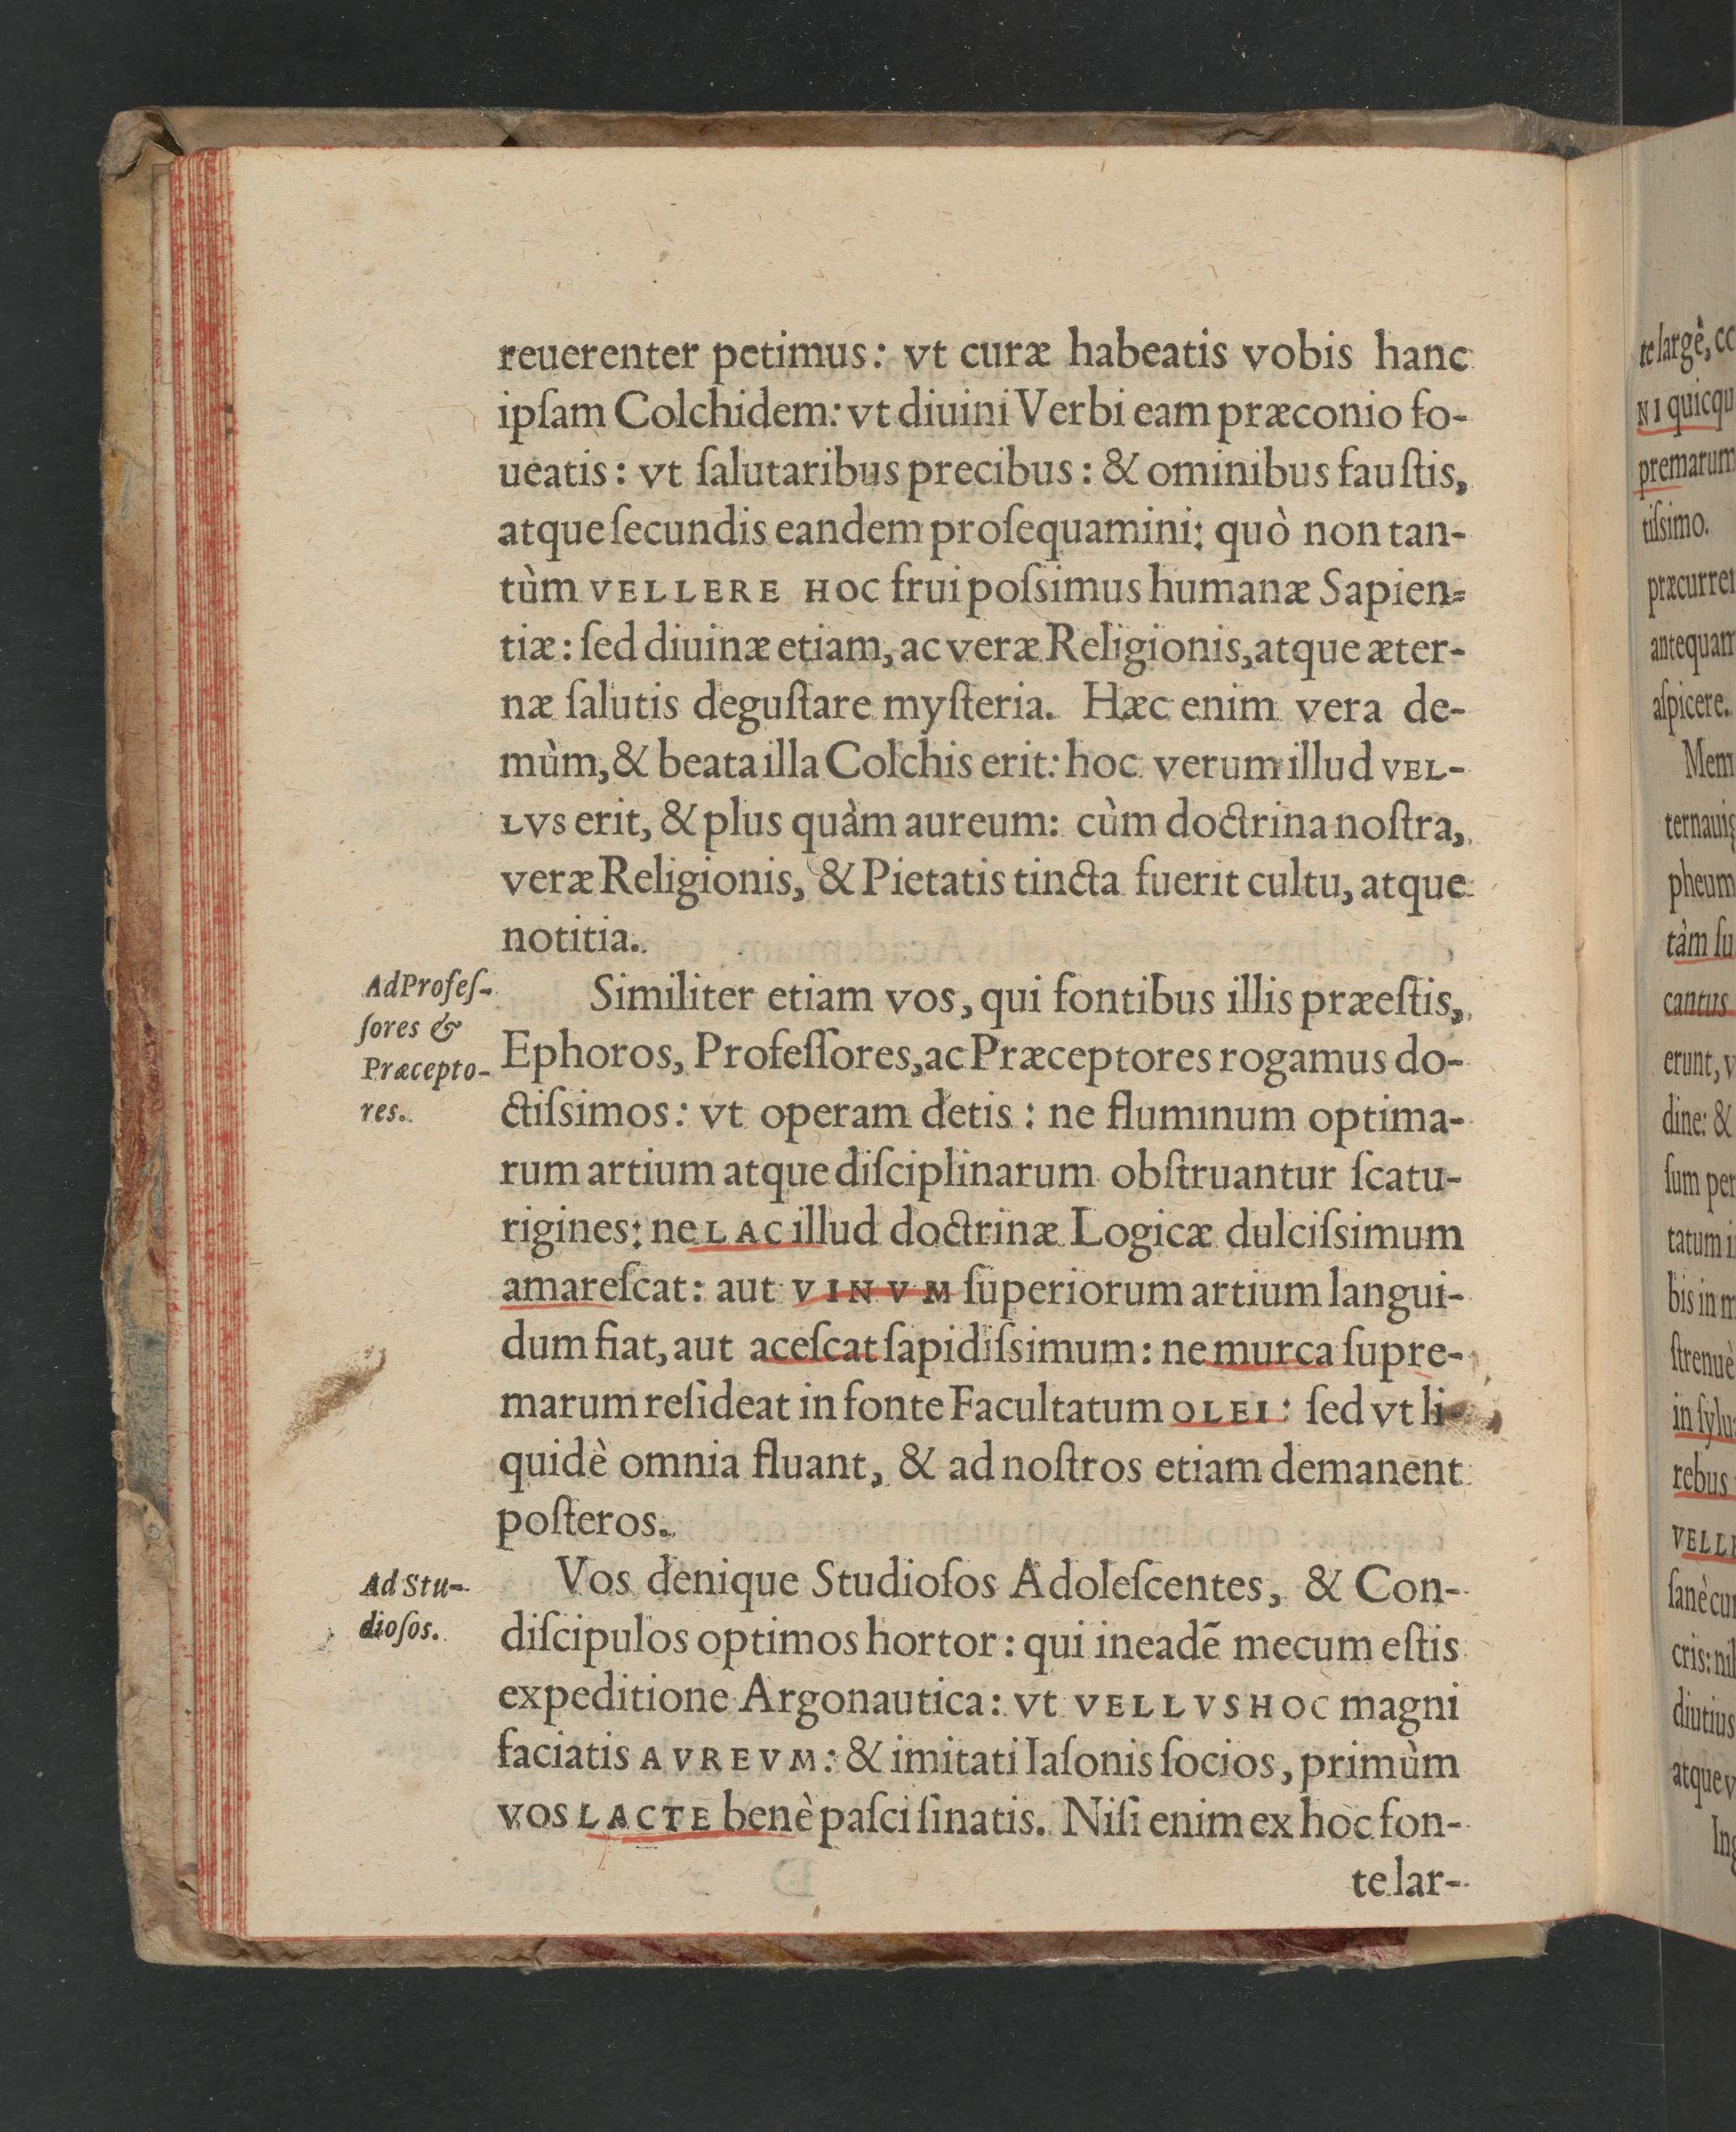 reuerenter petimus: vt curæ habeatis vobis hanc
ipſam Colchidem: vt diuini Verbi eam præconio fo-
ueatis: vt ſalutaribus precibus: & ominibus fauſtis,
atque ſecundis eandem proſequamini: quò non tan-
tùm VELLERE HOC frui poſsimus humanæ Sapien-
tiæ: ſed diuinæ etiam, ac veræ Religionis, atque æter-
næ ſalutis deguſtare myſteria. Hæc enim vera de-
mùm, & beata illa Colchis erit: hoc verum illud VEL-
LVS erit, & plus quàm aureum: cùm doctrina noſtra,
veræ Religionis, & Pietatis tincta fuerit cultu, atque
notitia.
Ad Profeſ-
ſores &
Præcepto-
res.
Similiter etiam vos, qui fontibus illis præeſtis,
Ephoros, Profeſſores, ac Præceptores rogamus do-
ctiſsimos: vt operam detis: ne fluminum optima-
rum artium atque diſciplinarum obſtruantur ſcatu-
rigines: ne LAC illud doctrinæ Logicæ dulciſsimum
amareſcat: aut VINVM ſuperiorum artium langui-
dum fiat, aut aceſcat ſapidiſsimum: ne murca ſupre-
marum reſideat in fonte Facultatum OLEI: ſed vt li-
quidè omnia fluant, & ad noſtros etiam demanent
poſteros.
Ad Stu-
dioſos.
Vos denique Studioſos Adoleſcentes, & Con-
diſcipulos optimos hortor: qui in eadē mecum eſtis
expeditione Argonautica: vt VELLVS HOC magni
faciatis AVREVM: & imitati Iaſonis ſocios, primùm
vos LACTE benè paſci ſinatis. Niſi enim ex hoc fon-
te lar-
te largè,
NI
premarum
tiſsimo.
aſpicere.
pheum
tàm
cantus
erunt,
dine: &
rebus
diutius